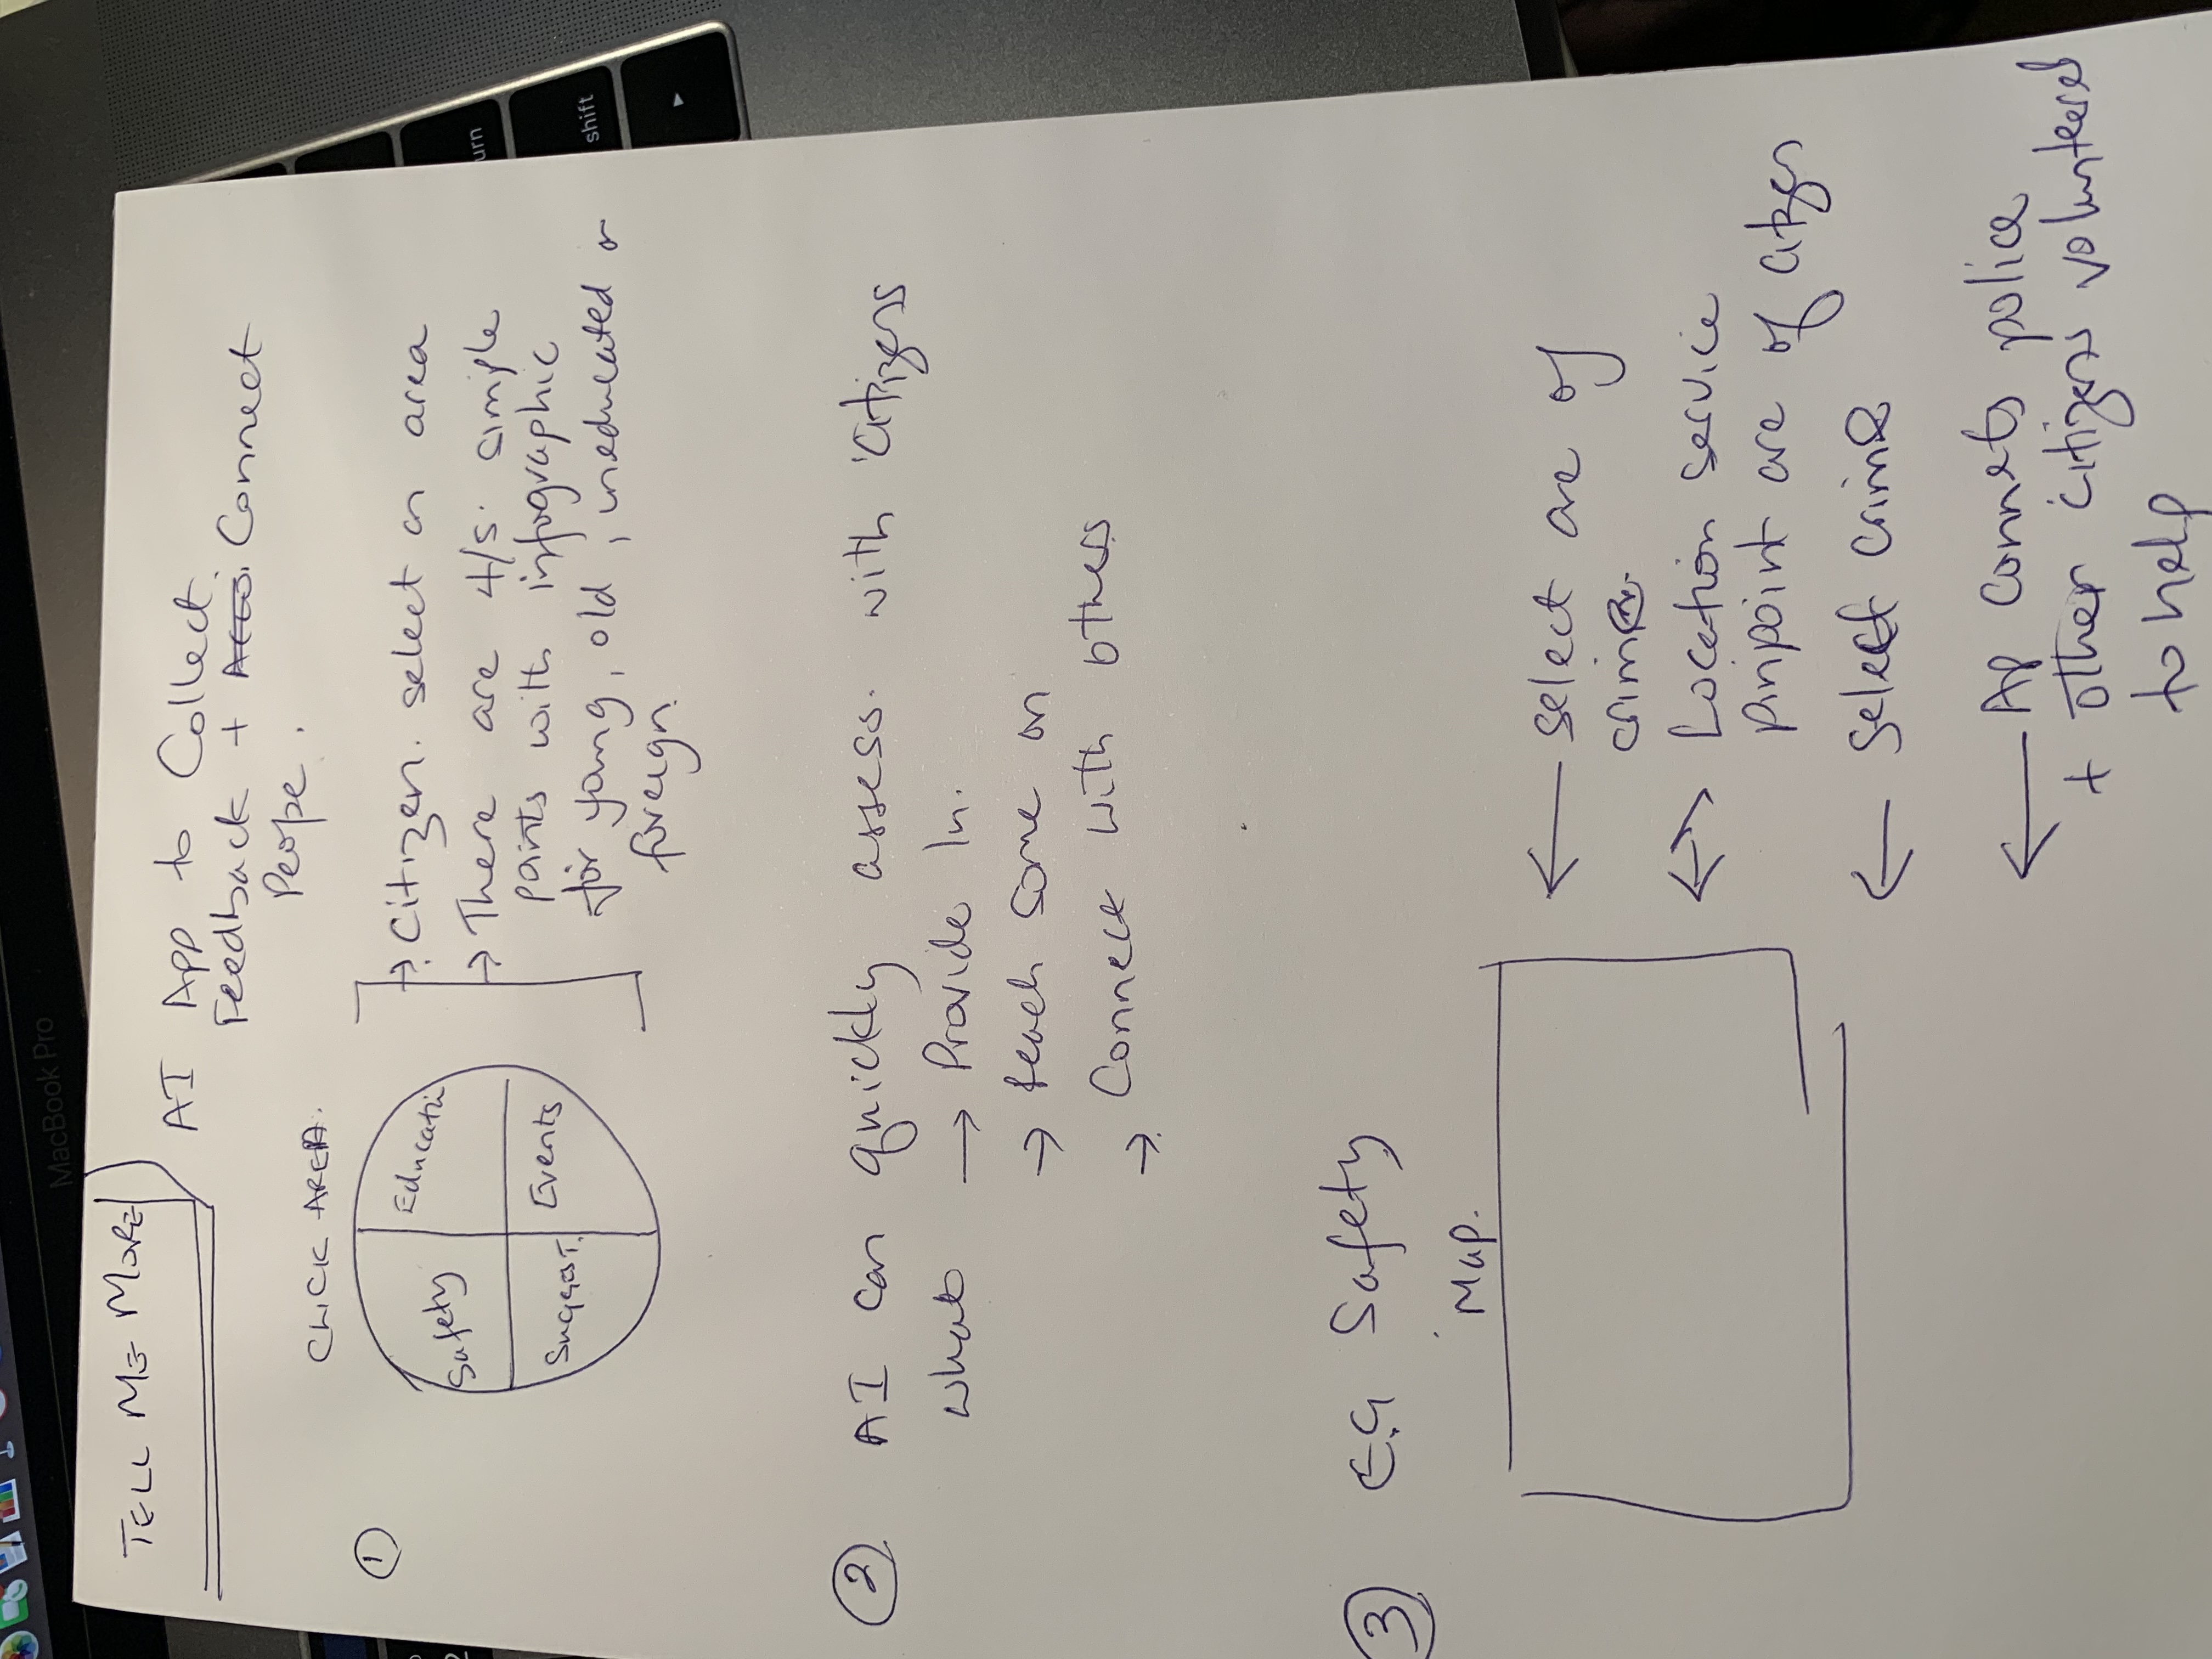 MacBook Pro
urn
shift
TELL ME MORE
AI App to Collect
Feedback + Connect
Peope.
①
CLICK AREA.
Safety
Educati
Suggest.
Events
→ Citizen. select an area
→ There are 4/5. simple
points with infographic
for young, old, uneducated or
foreign.
② AI can quickly assess. with with citizens
what → Provide In.
→ teach some on
→ Connect with others
③ E.G Safety
Map.
← select are of
crime.
Location service
pinpoint are of citizen
← Select crime
← Ap connects police
+ other citizens volunteers
to help